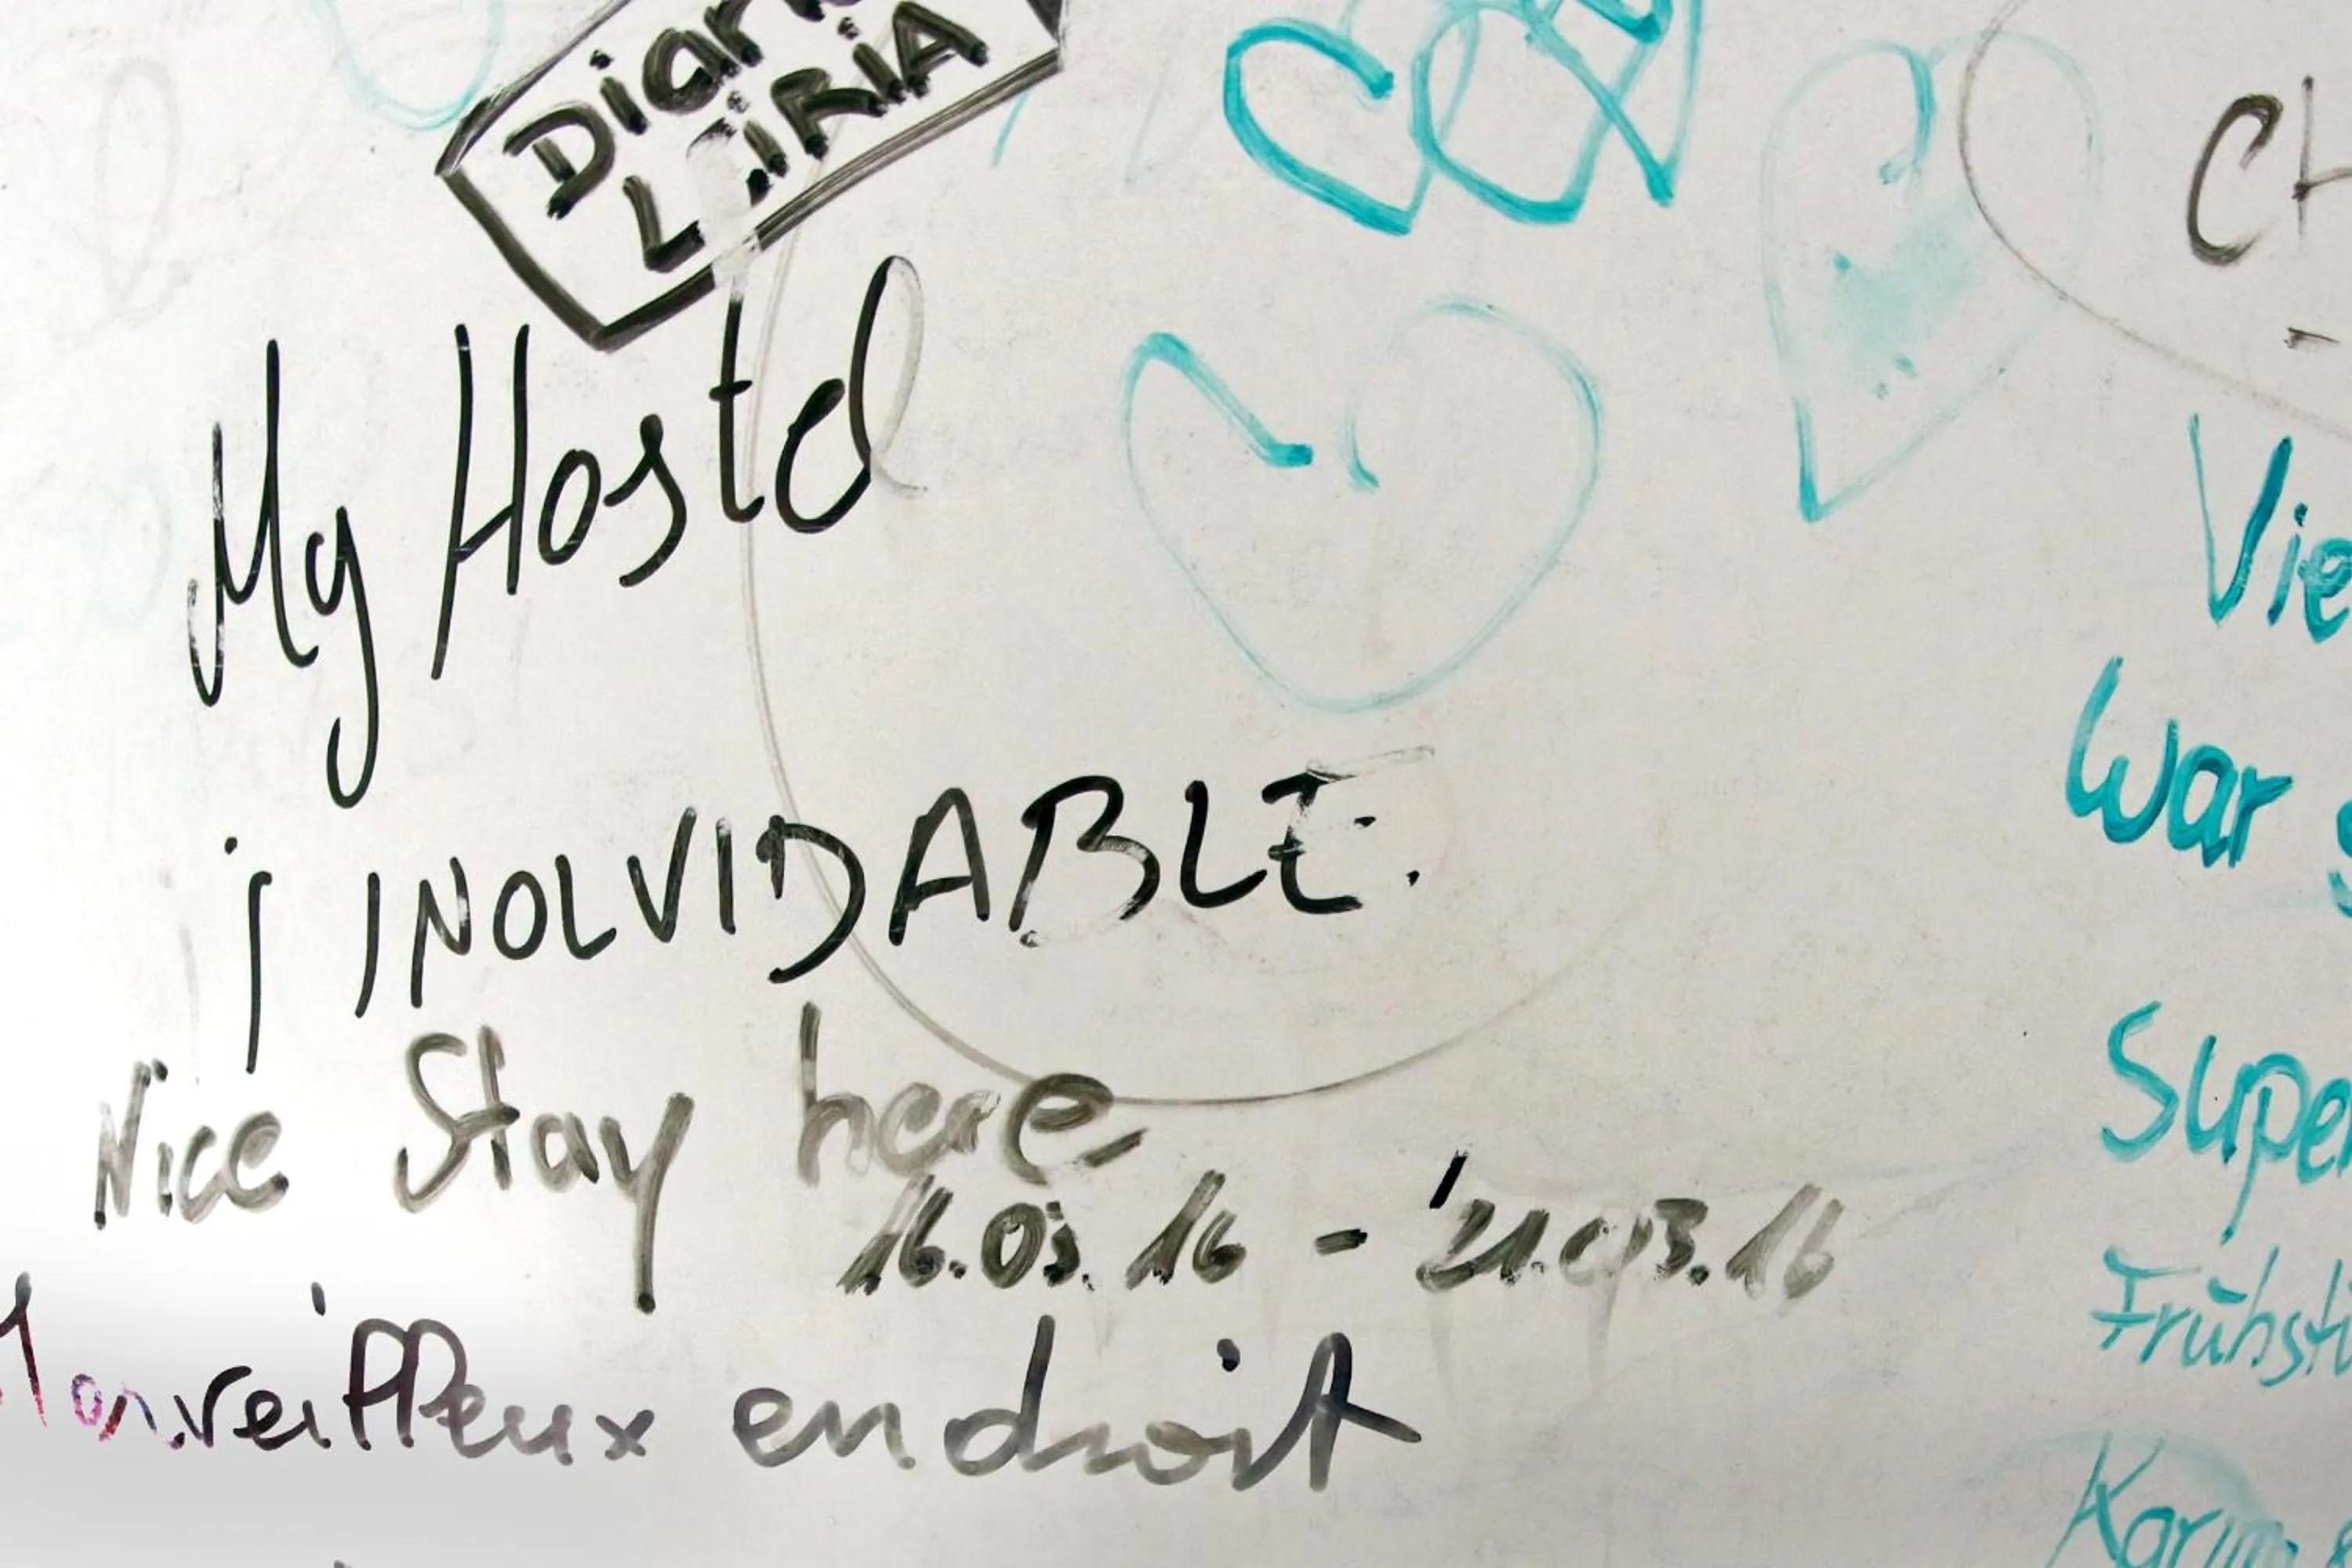 LiRiA
My Hostel
¡ INOLVIDABLE.
Nice Stay here
16.03.16 - '21.03.16
Merveilleux endroit
CH
Vie
war
Super
Frühst
Karim